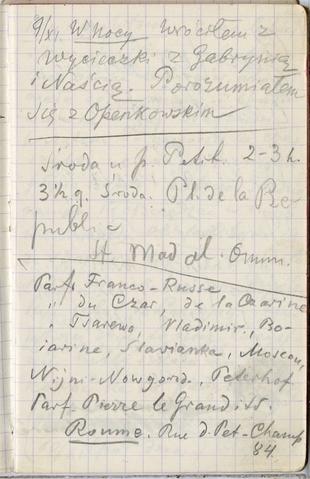 9/XI. W nocy wróciłem z
wycieczki z Gabrynią
i Naścią. Porozumiałem
się z Openkowskim
Środa u p. Petit. 2-3 h.
3 h. q. Środa. Pl. de la Re-
publi
St. Mad al. Omn.
Parf. Franco-Russe
" du Czar, de la Czarine
" Tsarewo, Vladimir., Bo-
iarine, Slavianka, Moscou,
Nijni-Nowgorod., Peterhof
Parf. Pierre le Grand
Roume. Rue d. Pet-Champ
84.